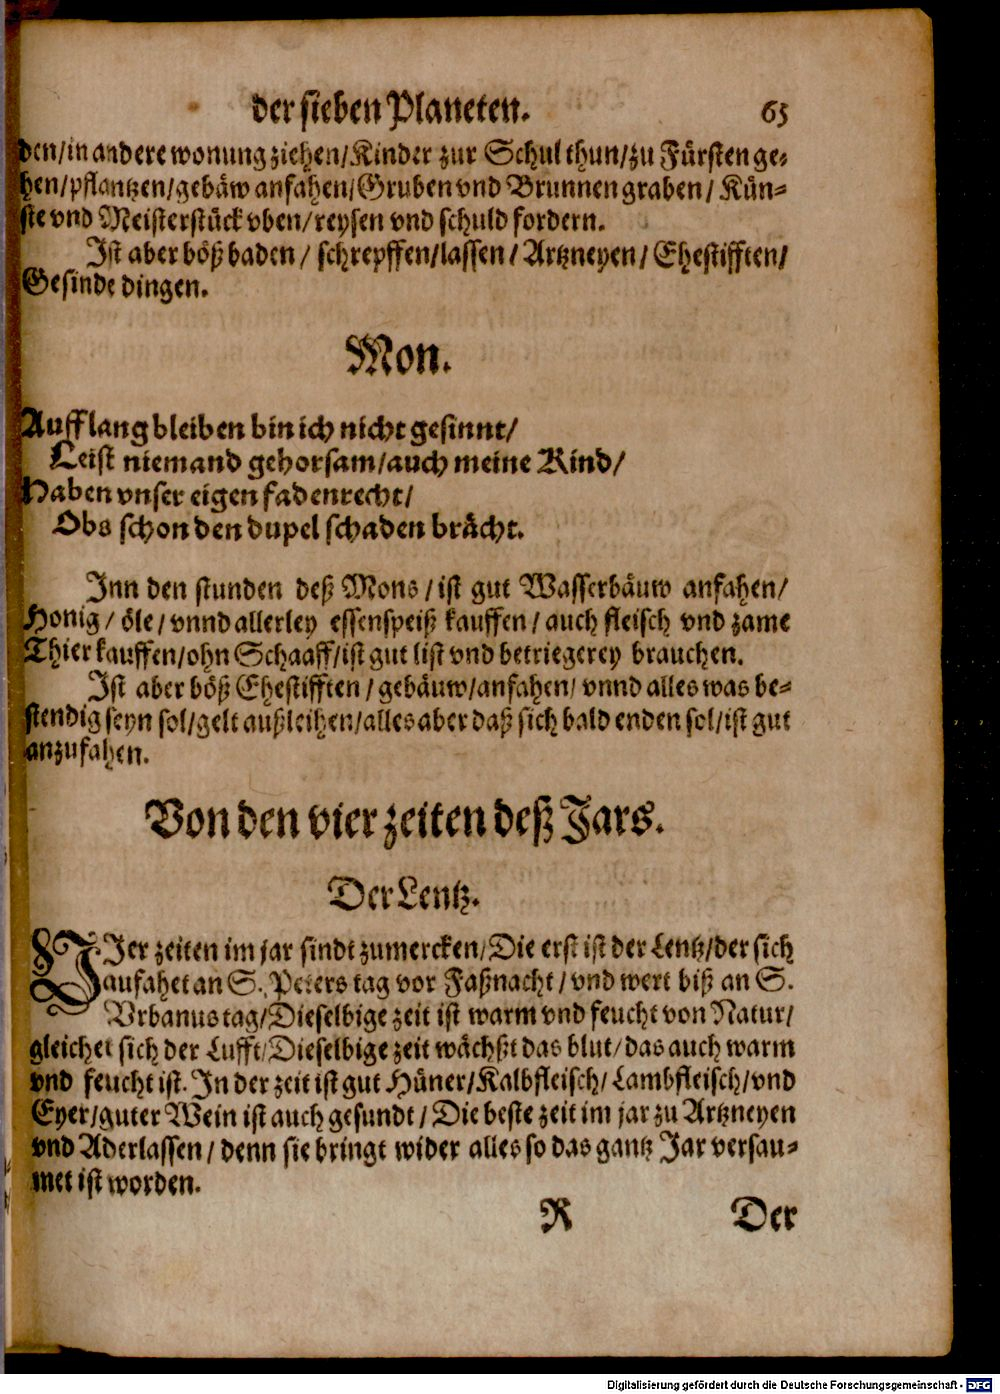 der sieben Planeten. 65
den/in andere wonung ziehen/Kinder zur Schul thun/zu Fürsten ge-
hen/pflantzen/gebäw anfahen/Gruben vnd Brunnen graben/ Kün-
ste vnd Meisterstück vben/reysen vnd schuld fordern.
Ist aber böß baden / schrepffen/lassen / Artzneyen / Ehestifften/
Gesinde dingen.
Mon.
Auff lang bleiben bin ich nicht gesinnt/
Leist niemand gehorsam/auch meine Kind/
Haben vnser eigen fadenrecht/
Obs schon den dupel schaden brächt.
Inn den stunden deß Mons / ist gut Wasserbäuw anfahen/
Honig / öle / vnnd allerley essenspeiß kauffen / auch fleisch vnd zame
Thier kauffen/ohn Schaaff/ist gut list vnd betriegerey brauchen.
Ist aber böß Ehestifften / gebäuw/anfahen/ vnnd alles was be-
stendig seyn sol/gelt außleihen/alles aber daß sich bald enden sol/ist gut
anzufahen.
Von den vier zeiten deß Jars.
Der Lentz.
VIer zeiten im jar sindt zumercken/Die erst ist der Lentz/der sich
aufahet an S. Peters tag vor Faßnacht / vnd wert biß an S.
Vrbanus tag/Dieselbige zeit ist warm vnd feucht von Natur/
gleichet sich der Lufft/Dieselbige zeit wächßt das blut/das auch warm
vnd feucht ist. In der zeit ist gut Hüner/Kalbfleisch/Lambfleisch/vnd
Eyer/guter Wein ist auch gesundt / Die beste zeit im jar zu Artzneyen
vnd Aderlassen / denn sie bringt wider alles so das gantz Jar versau-
met ist worden.
R Der
Digitalisierung gefördert durch die Deutsche Forschungsgemeinschaft - DFG